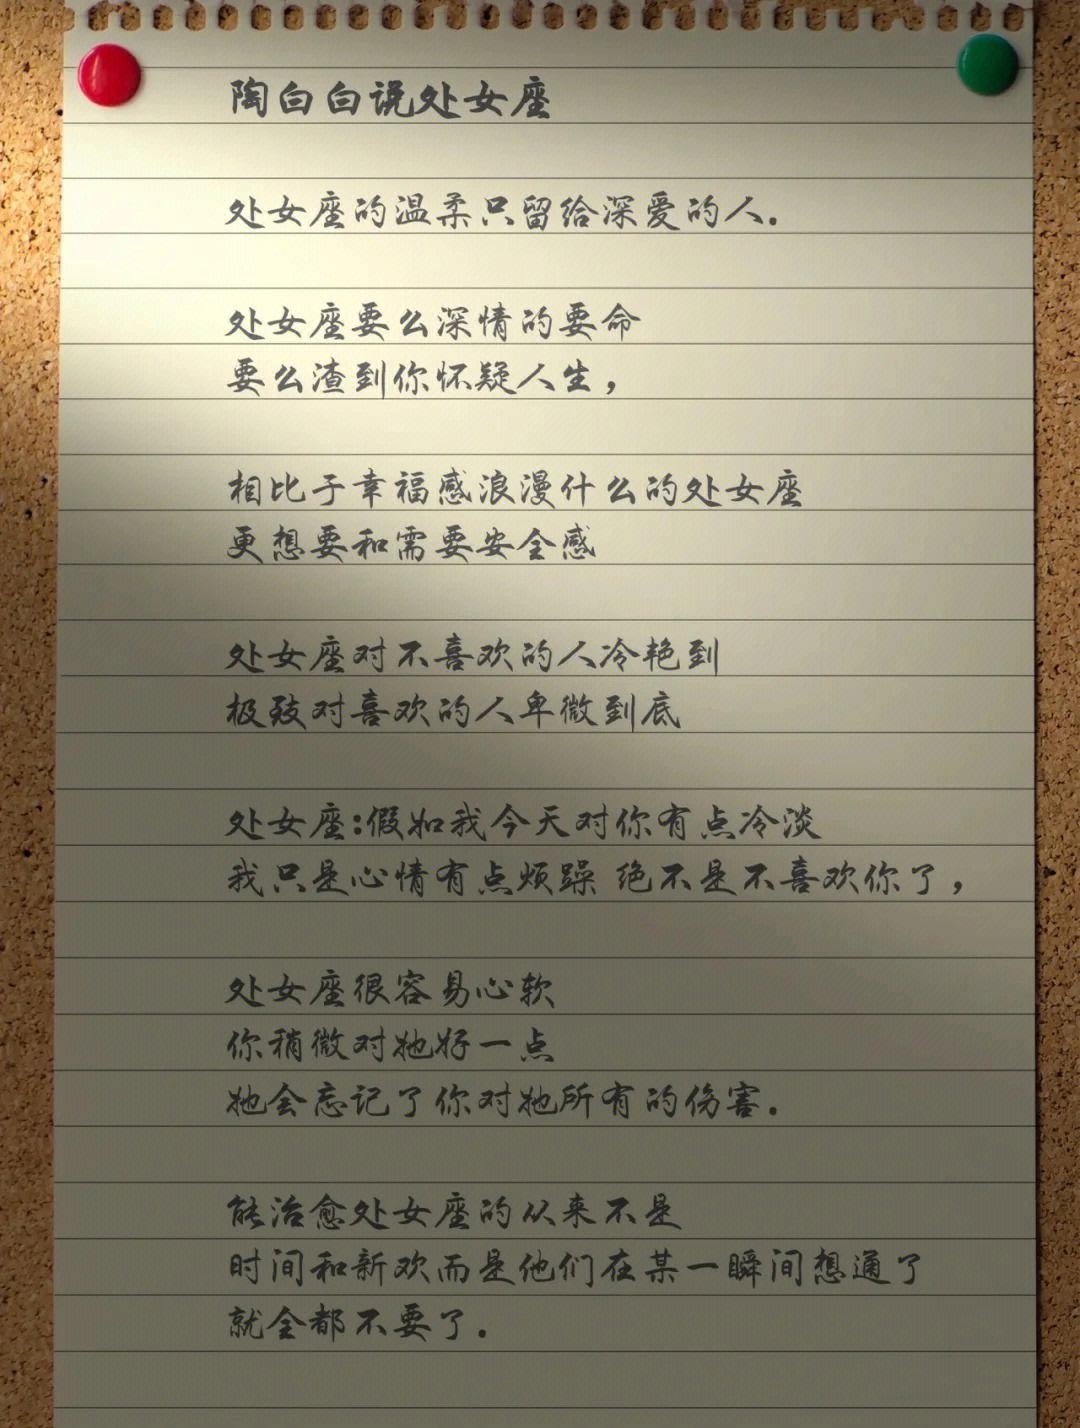 陶白白说处女座
处女座的温柔只留给深爱的人.
处女座要么深情的要命
要么渣到你怀疑人生，
相比于幸福感浪漫什么的处女座
更想要和需要安全感
处女座对不喜欢的人冷艳到
极致对喜欢的人卑微到底
处女座:假如我今天对你有点冷淡
我只是心情有点烦躁 绝不是不喜欢你了，
处女座很容易心软
你稍微对她好一点
她会忘记了你对她所有的伤害.
能治愈处女座的从来不是
时间和新欢而是他们在某一瞬间想通了
就全都不要了.